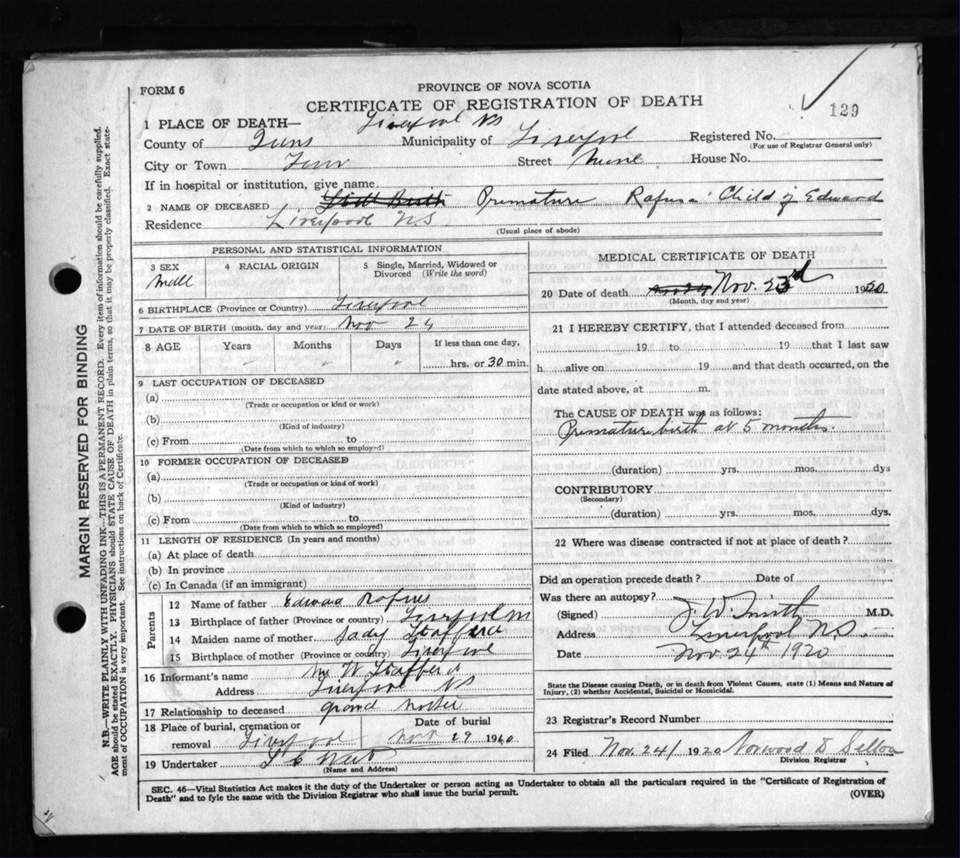 PROVINCE OF NOVA SCOTIA
FORM 6
CERTIFICATE OF REGISTRATION OF DEATH
129
1 PLACE OF DEATH— Liverpool NS
County of Municipality of Liverpool Registered No.
(For use of Registrar General only)
City or Town Street House No.
If in hospital or institution, give name
2 NAME OF DECEASED Still Birth Premature Rafuse Child of Edward
Residence Liverpool N.S.
(Usual place of abode)
PERSONAL AND STATISTICAL INFORMATION
3 SEX
4 RACIAL ORIGIN
5 Single, Married, Widowed or
Divorced (Write the word)
6 BIRTHPLACE (Province or Country) Liverpool
7 DATE OF BIRTH (month, day and year) Nov 24
8 AGE Years Months Days If less than one day,
" " " hrs. or 30 min.
9 LAST OCCUPATION OF DECEASED
(a)
(Trade or occupation or kind of work)
(b)
(Kind of industry)
(c) From to
(Date from which to which so employed)
10 FORMER OCCUPATION OF DECEASED
(a)
(Trade or occupation or kind of work)
(b)
(Kind of industry)
(c) From to
(Date from which to which so employed)
11 LENGTH OF RESIDENCE (In years and months)
(a) At place of death
(b) In province
(c) In Canada (if an immigrant)
Parents
12 Name of father Edward Rafuse
13 Birthplace of father (Province or country) Liverpool
14 Maiden name of mother Sady
15 Birthplace of mother (Province or country) Liverpool
16 Informant's name W
Address Liverpool NS
17 Relationship to deceased grand Mother
18 Place of burial, cremation or Date of burial
removal Liverpool Nov 29 19
19 Undertaker
(Name and Address)
MEDICAL CERTIFICATE OF DEATH
20 Date of death Nov. 23rd 1920
(Month, day and year)
21 I HEREBY CERTIFY, that I attended deceased from
19 to 19 that I last saw
h alive on 19 and that death occurred, on the
date stated above, at m.
The CAUSE OF DEATH was as follows:
Premature birth at 5 months.
(duration) yrs. mos. dys
CONTRIBUTORY
(Secondary)
(duration) yrs. mos. dys.
22 Where was disease contracted if not at place of death?
Did an operation precede death? Date of
Was there an autopsy?
(Signed) J. W. Smith M.D.
Address Liverpool N.S.
Date Nov 24th 1920
State the Disease causing Death, or in death from Violent Causes, state (1) Means and Nature of
Injury, (2) whether Accidental, Suicidal or Homicidal.
23 Registrar's Record Number
24 Filed Nov. 24/ 1920 Norwood
Division Registrar
SEC. 46—Vital Statistics Act makes it the duty of the Undertaker or person acting as Undertaker to obtain all the particulars required in the "Certificate of Registration of
Death" and to fyle the same with the Division Registrar who shall issue the burial permit. (OVER)
MARGIN RESERVED FOR BINDING
N.B.—WRITE PLAINLY WITH UNFADING INK—THIS IS A PERMANENT RECORD. Every item of information should be carefully supplied.
AGE should be stated EXACTLY. PHYSICIANS should STATE CAUSE OF DEATH in plain terms, so that it may be properly classified. Exact state-
ment of OCCUPATION is very important. See instructions on back of Certificate.